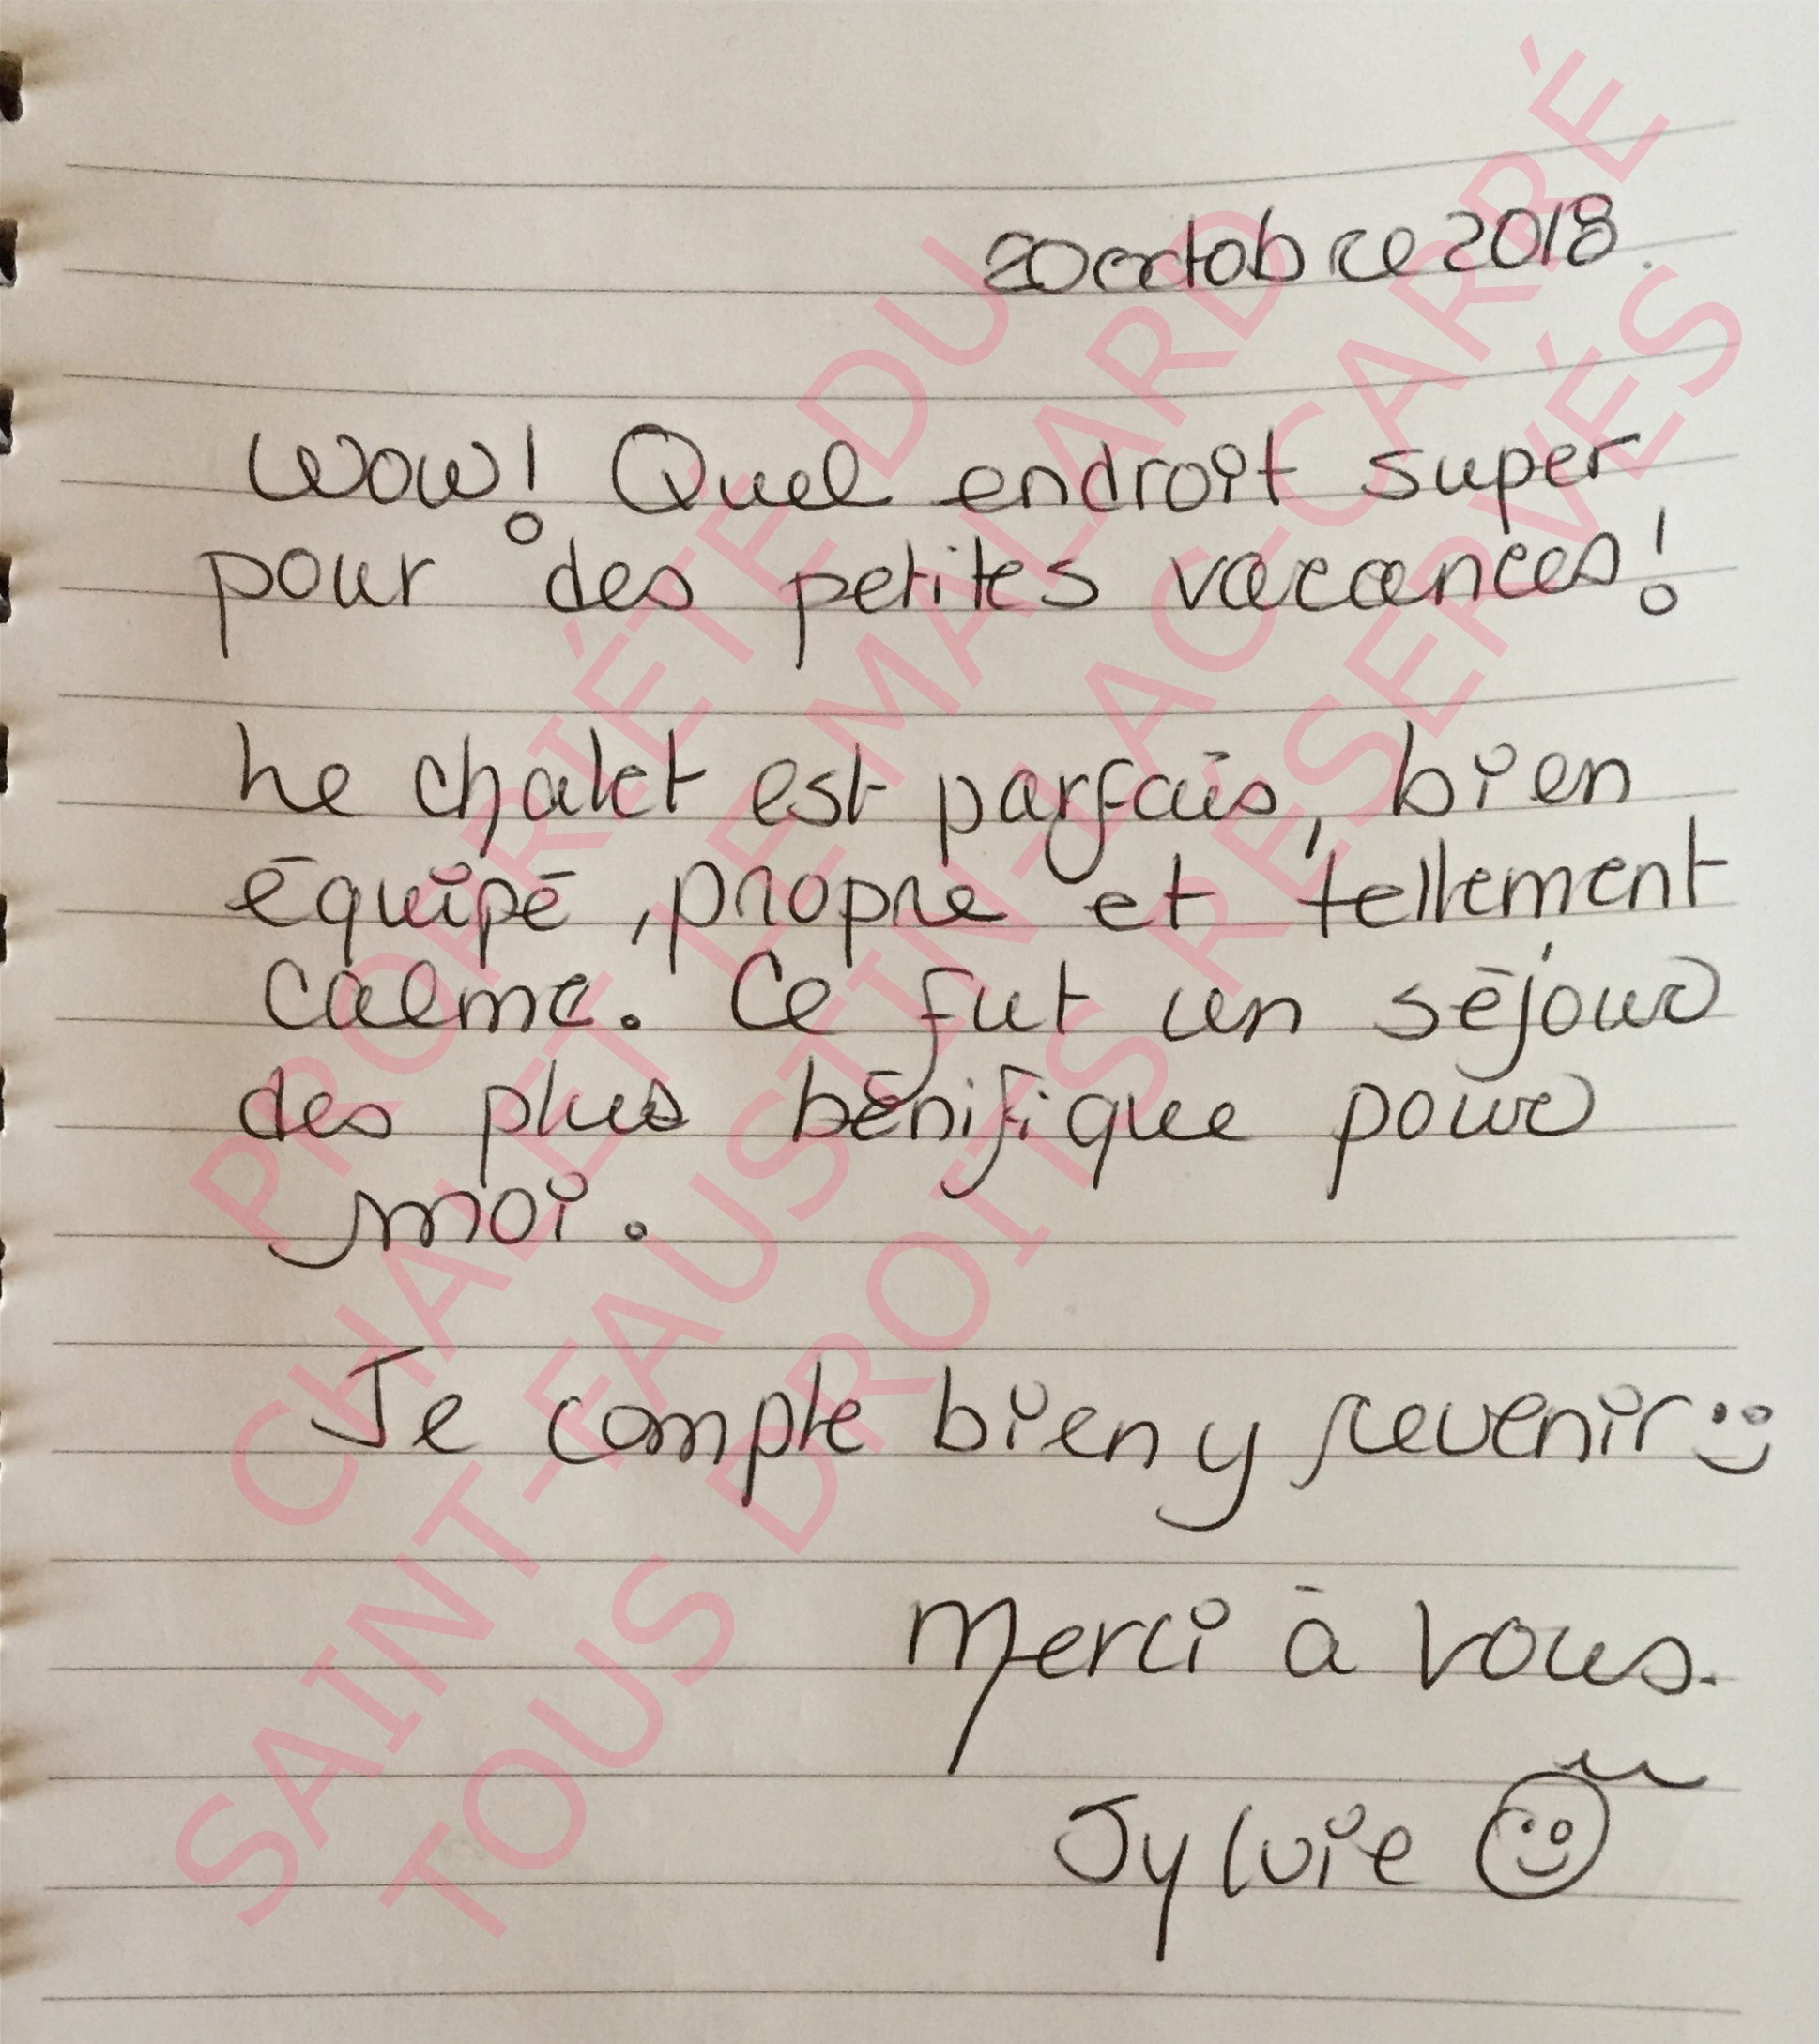 20 octobre 2018.
Wow! Quel endroit super
pour des petites vacances!
Le chalet est parfais, bien
équipé, propre et tellement
calme. Ce fut un séjour
des plus bénifique pour
moi.
Je compte bien y revenir :)
Merci à vous.
Sylvie
PROPRIÉTÉ DU
CHALET LE MALARD
SAINT-FAUSTIN-LAC-CARRÉ
TOUS DROITS RÉSERVÉS